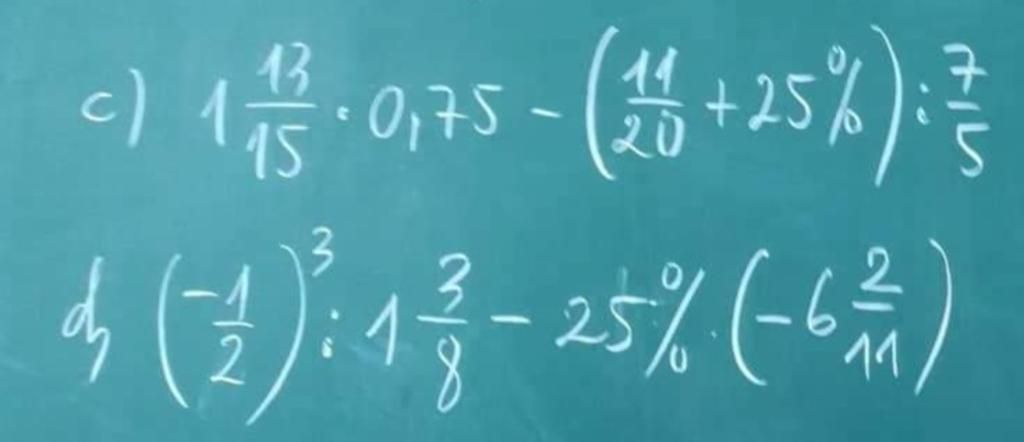 c) 1 13/15 · 0,75 - (11/20 + 25%) : 7/5
d) (-1/2)³ : 1 3/8 - 25% · (-6 2/11)